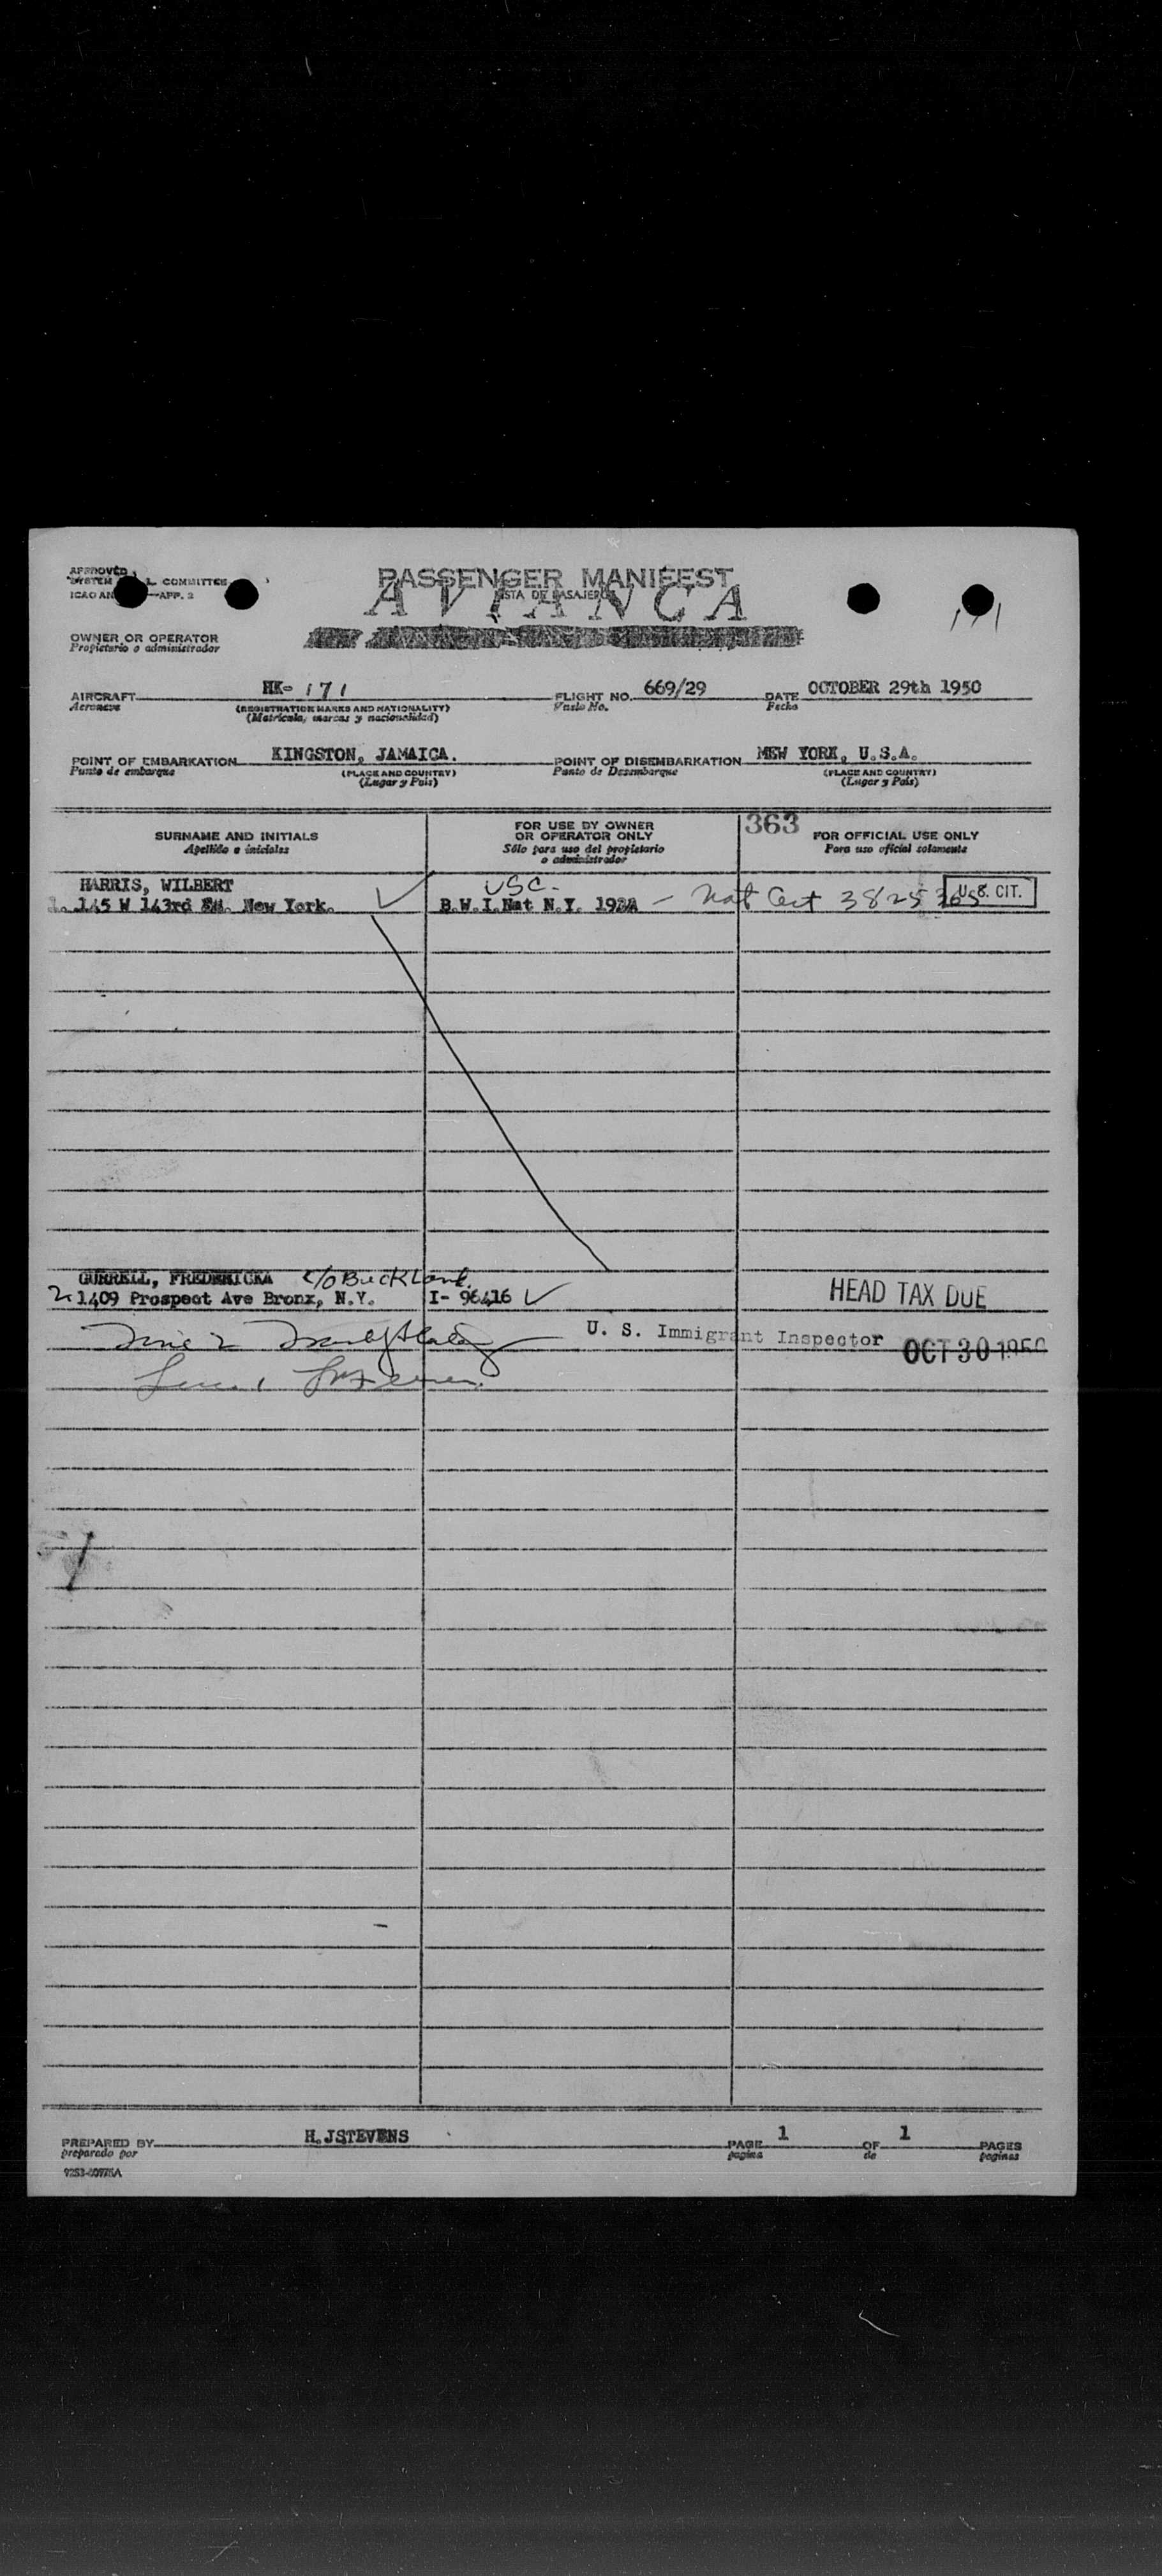 APPROVED
SYSTEM L. COMMITTEE
ICAO AN —APP. 2
PASSENGER MANIFEST
LISTA DE PASAJEROS
AVIANCA
OWNER OR OPERATOR
Propietario o administrador
AIRCRAFT HK- 171 FLIGHT NO. 669/29 DATE OCTOBER 29th 1950
Aeronave (REGISTRATION MARKS AND NATIONALITY) Vuelo No. Fecha
(Matrícula, marcas y nacionalidad)
POINT OF EMBARKATION KINGSTON, JAMAICA. POINT OF DISEMBARKATION NEW YORK, U.S.A.
Punto de embarque (PLACE AND COUNTRY) Punto de Desembarque (PLACE AND COUNTRY)
(Lugar y País) (Lugar y País)
363
SURNAME AND INITIALS FOR USE BY OWNER OR OPERATOR ONLY FOR OFFICIAL USE ONLY
Apellido e iniciales Sólo para uso del propietario o administrador Para uso oficial solamente
HARRIS, WILBERT USC.
1. 145 W 143rd St. New York. B.W.I.Nat N.Y. — Nat Cert 3825365 U.S. CIT.
GURRELL, FREDERICKA c/o Buckland.
2. 1409 Prospect Ave Bronx, N.Y. I- 96416 HEAD TAX DUE
U. S. Immigrant Inspector OCT 30 1950
PREPARED BY H.JSTEVENS PAGE 1 OF 1 PAGES
preparado por pagina de paginas